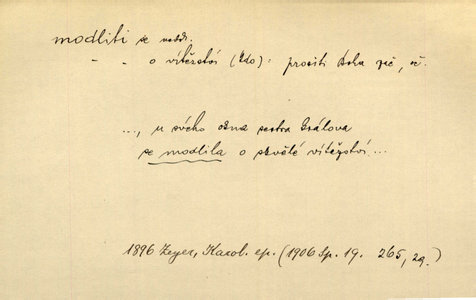 modliti se nedok.
- - o vítězství (kdo): prositi Boha zač, oč.
..., u svého okna sestra králova
se modlila o skvělé vítězství...
1896 Zeyer, Karol. ep. (1906 Sp. 19. 265, 29.)